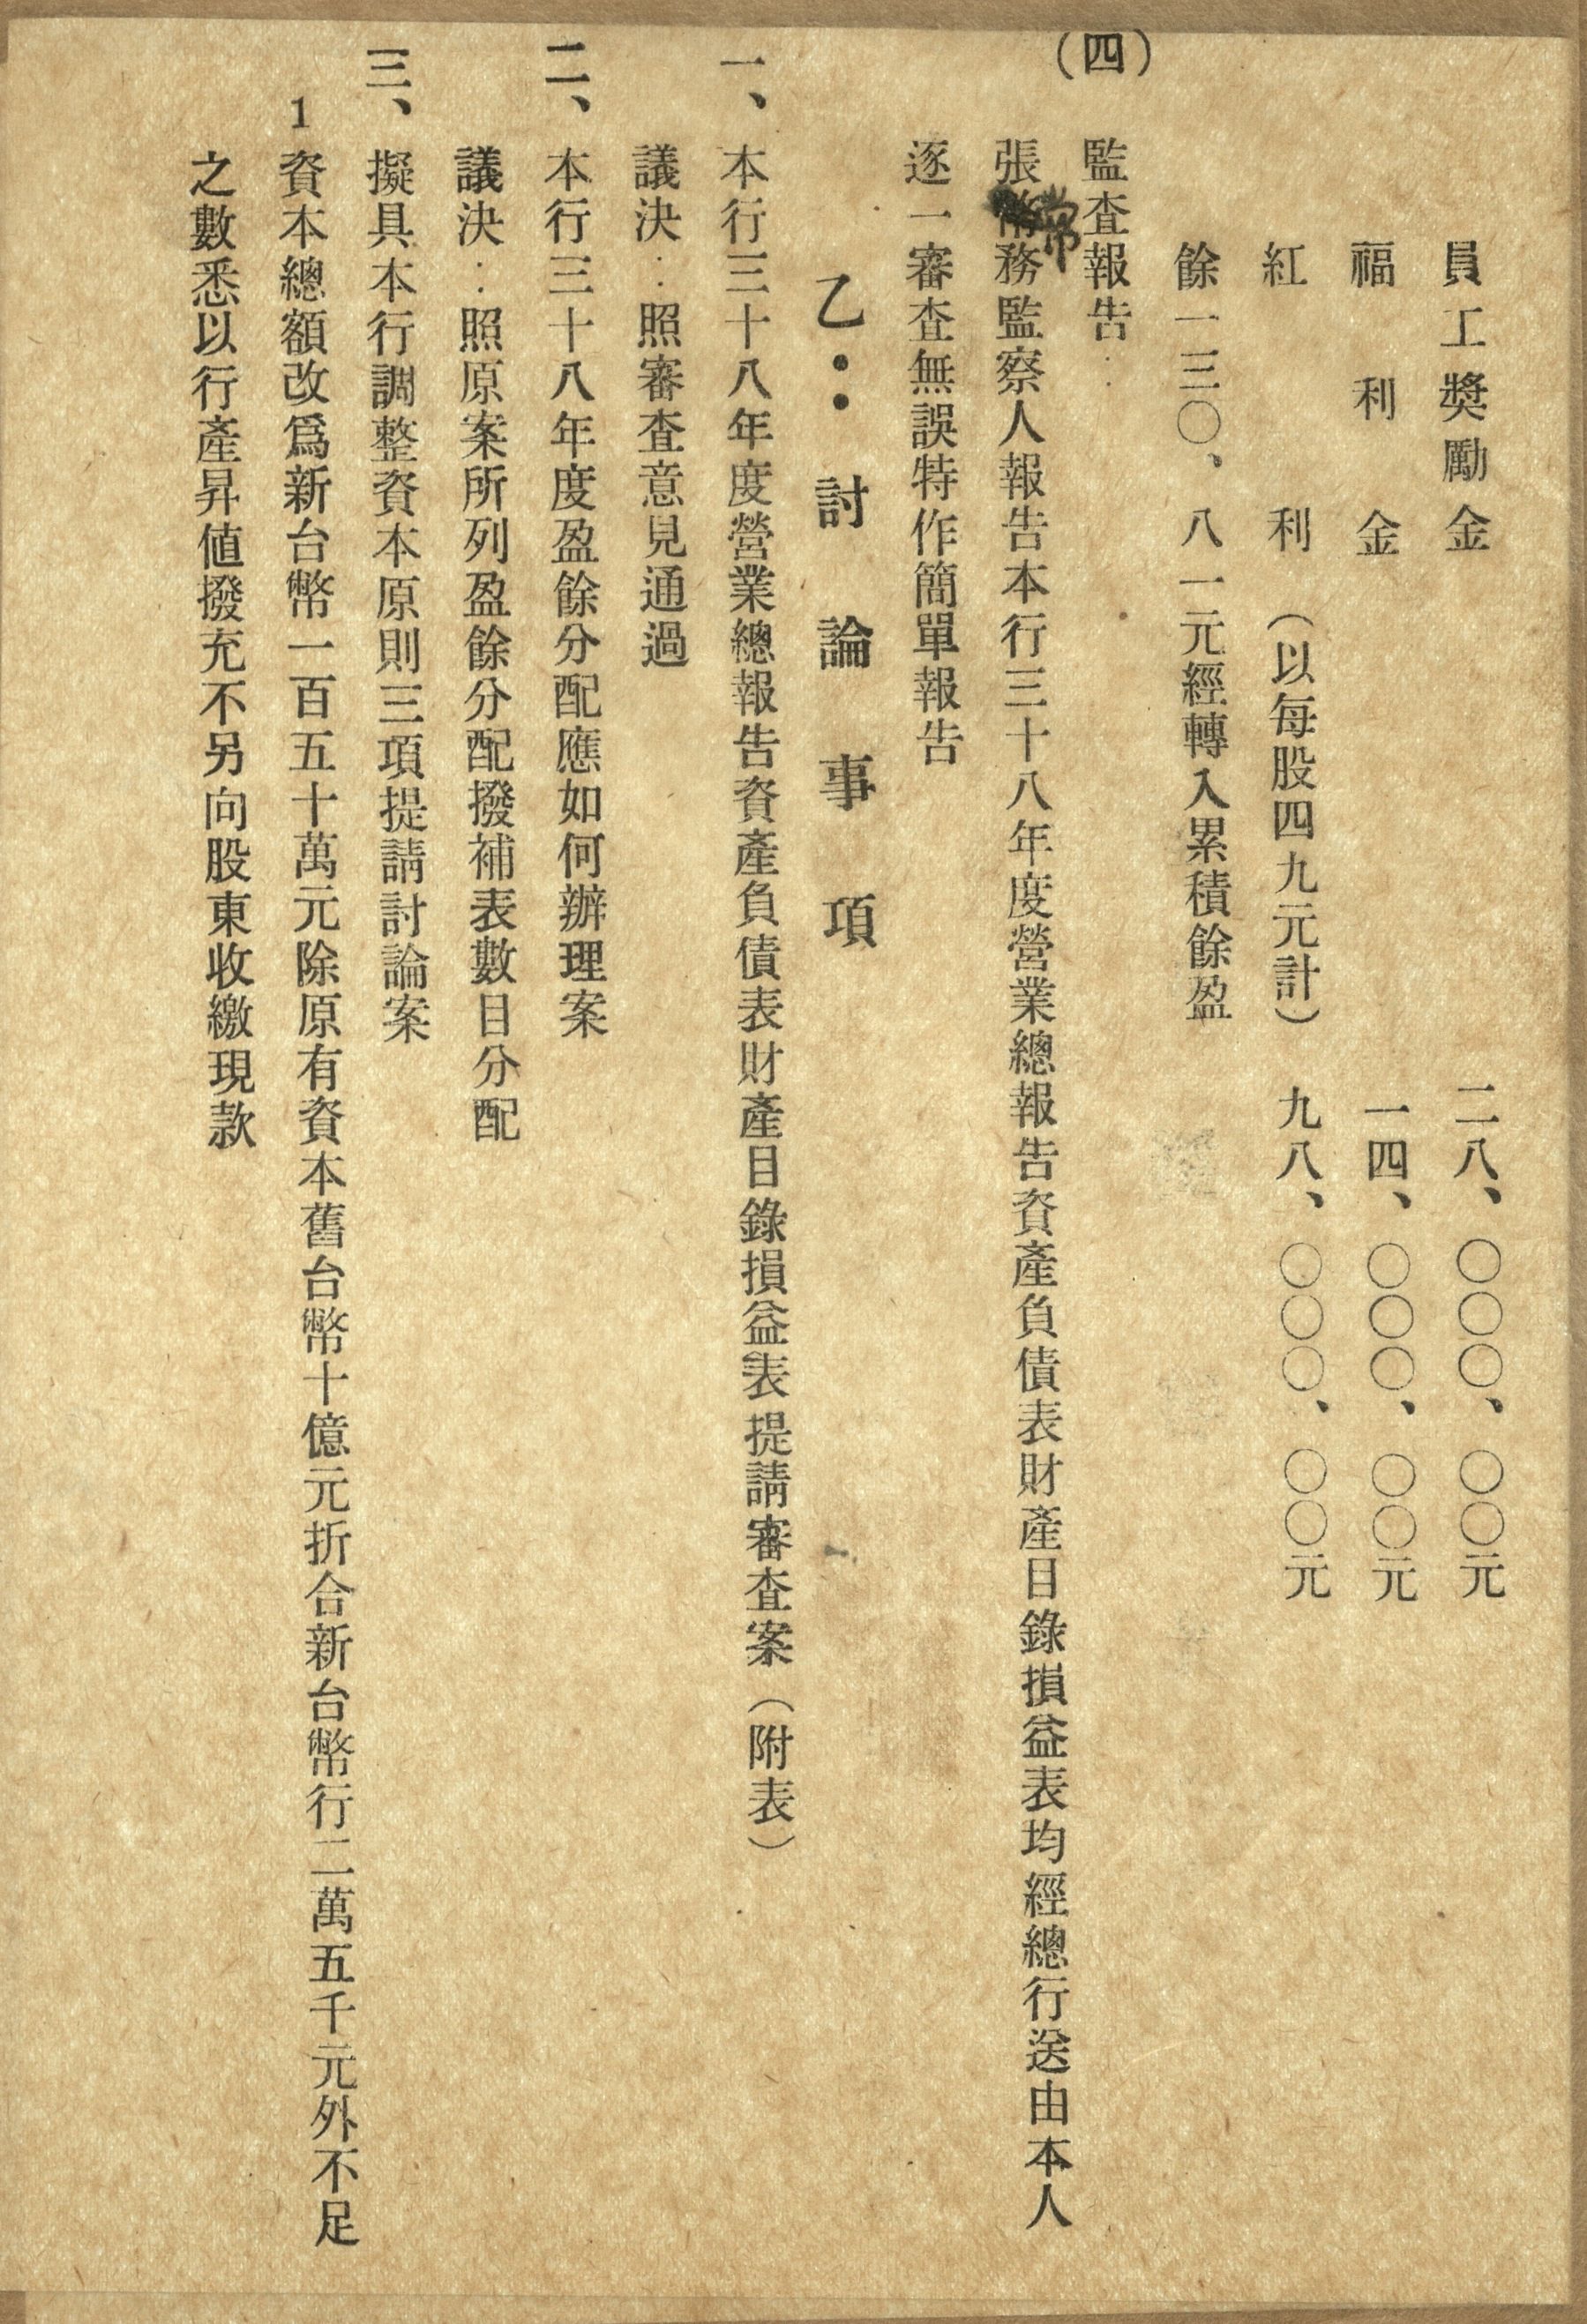 員工獎勵金 二八、〇〇〇、〇〇元
福利金 一四、〇〇〇、〇〇元
紅利 (以每股四九元計) 九八、〇〇〇、〇〇元
餘一三〇、八一元經轉入累積餘盈
(四) 監查報告:
張常務監察人報告本行三十八年度營業總報告資產負債表財產目錄損益表均經總行送由本人
逐一審查無誤特作簡單報告
乙:討論事項
一、本行三十八年度營業總報告資產負債表財產目錄損益表提請審查案(附表)
議決:照審查意見通過
二、本行三十八年度盈餘分配應如何辦理案
議決:照原案所列盈餘分配撥補表數目分配
三、擬具本行調整資本原則三項提請討論案
1資本總額改爲新台幣一百五十萬元除原有資本舊台幣十億元折合新台幣行二萬五千元外不足
之數悉以行產昇値撥充不另向股東收繳現款